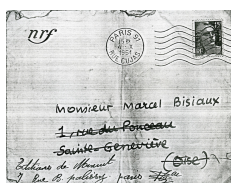 nrf
PARIS
RUE CUJAS
Monsieur Marcel Bisiaux
1, rue du Ponceau
Sainte-Geneviève
(Oise)
Editions de Minuit
7, Rue B. palissy paris